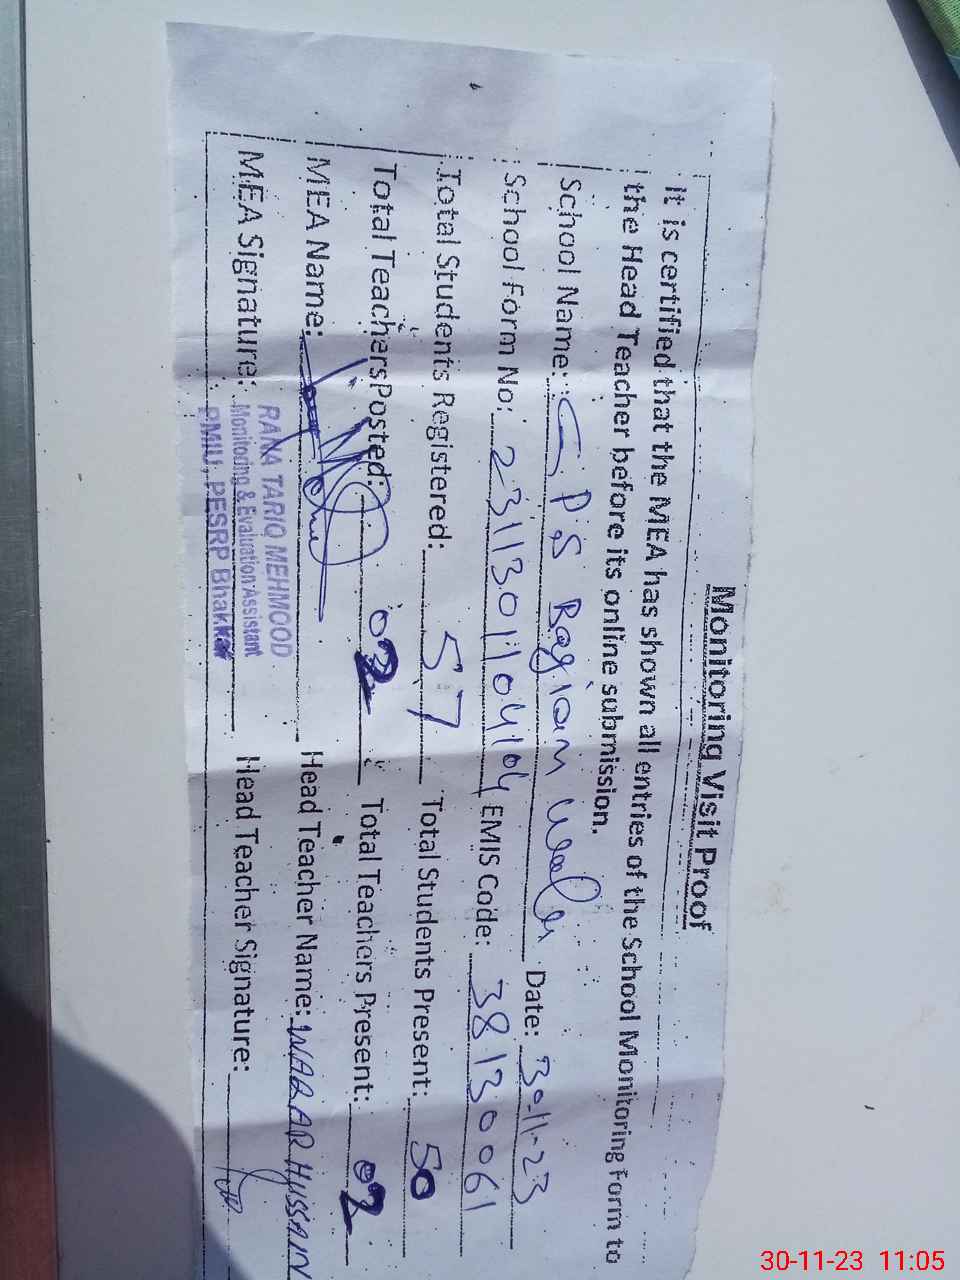 Monitoring Visit Proof
It is certified that the MEA has shown all entries of the School Monitoring Form to
the Head Teacher before its online submission.
School Name: GPS Bagian Wala Date: 30-11-23
School Form No: 23113011104104 EMIS Code: 38130061
Total Students Registered: 57 Total Students Present: 50
Total Teachers Posted: 02 Total Teachers Present: 02
MEA Name: Head Teacher Name: WAQAR HUSSAIN
MEA Signature: Head Teacher Signature:
RANA TARIQ MEHMOOD
Monitoring & Evaluation Assistant
PMIU, PESRP Bhakkar
30-11-23 11:05